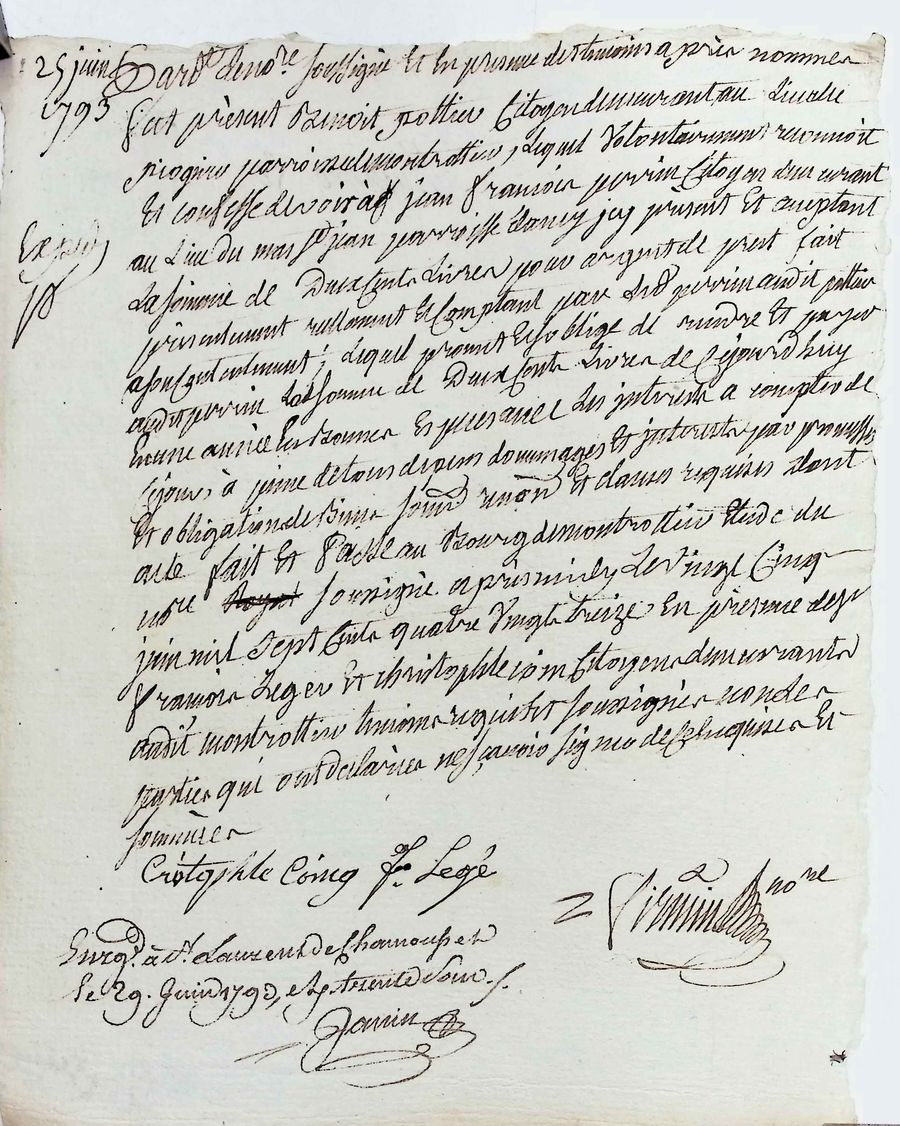 25 juin
1793
Expédié
Pard.t le no.re soussigné et en presence des temoins après nommés
fut present Benoit pottier Citoyen demeurant au lieu de
parroisse de montrottier, lequel Volontairement reconnoit
Et confesse devoir à jean françois perrin Citoyen demeurant
au Lieu du mas St jean parroisse dancy icy present Et aceptant
La somme de Deux Cents Livres pour argent de prest fait
présentement réellement et Comptant par led. perrin audit pottier
a son contentement; Lequel promet et s'oblige de rendre Et payer
audit perrin Lad. somme de Deux Cents Livres de Cejourdhuy
En une année En Bonnes Espèces avec les interets a compter de
Cejour, à peine de tous depens dommages Et interets par promesses
Et obligation de Biens soum.on renon.on Et clauses requises dont
acte fait Et Passé au Bourg de montrottier Etude du
no.re soussigné après midy Le Vingt Cinq
juin mil sept Cents quatre Vingt treize En présence de
francois Leger Et christophle coing Citoyens demeurants
audit montrottier temoins requis et soussignés non les
parties qui ont declarées ne sçavoir signer de ce enquises Et
sommées
Cristophle Coing f.s Legé
Firmin no.re
Enrg.é à St. Laurent de Chamousset
le 29. Juin 1793, reçu trente sous.
Janin